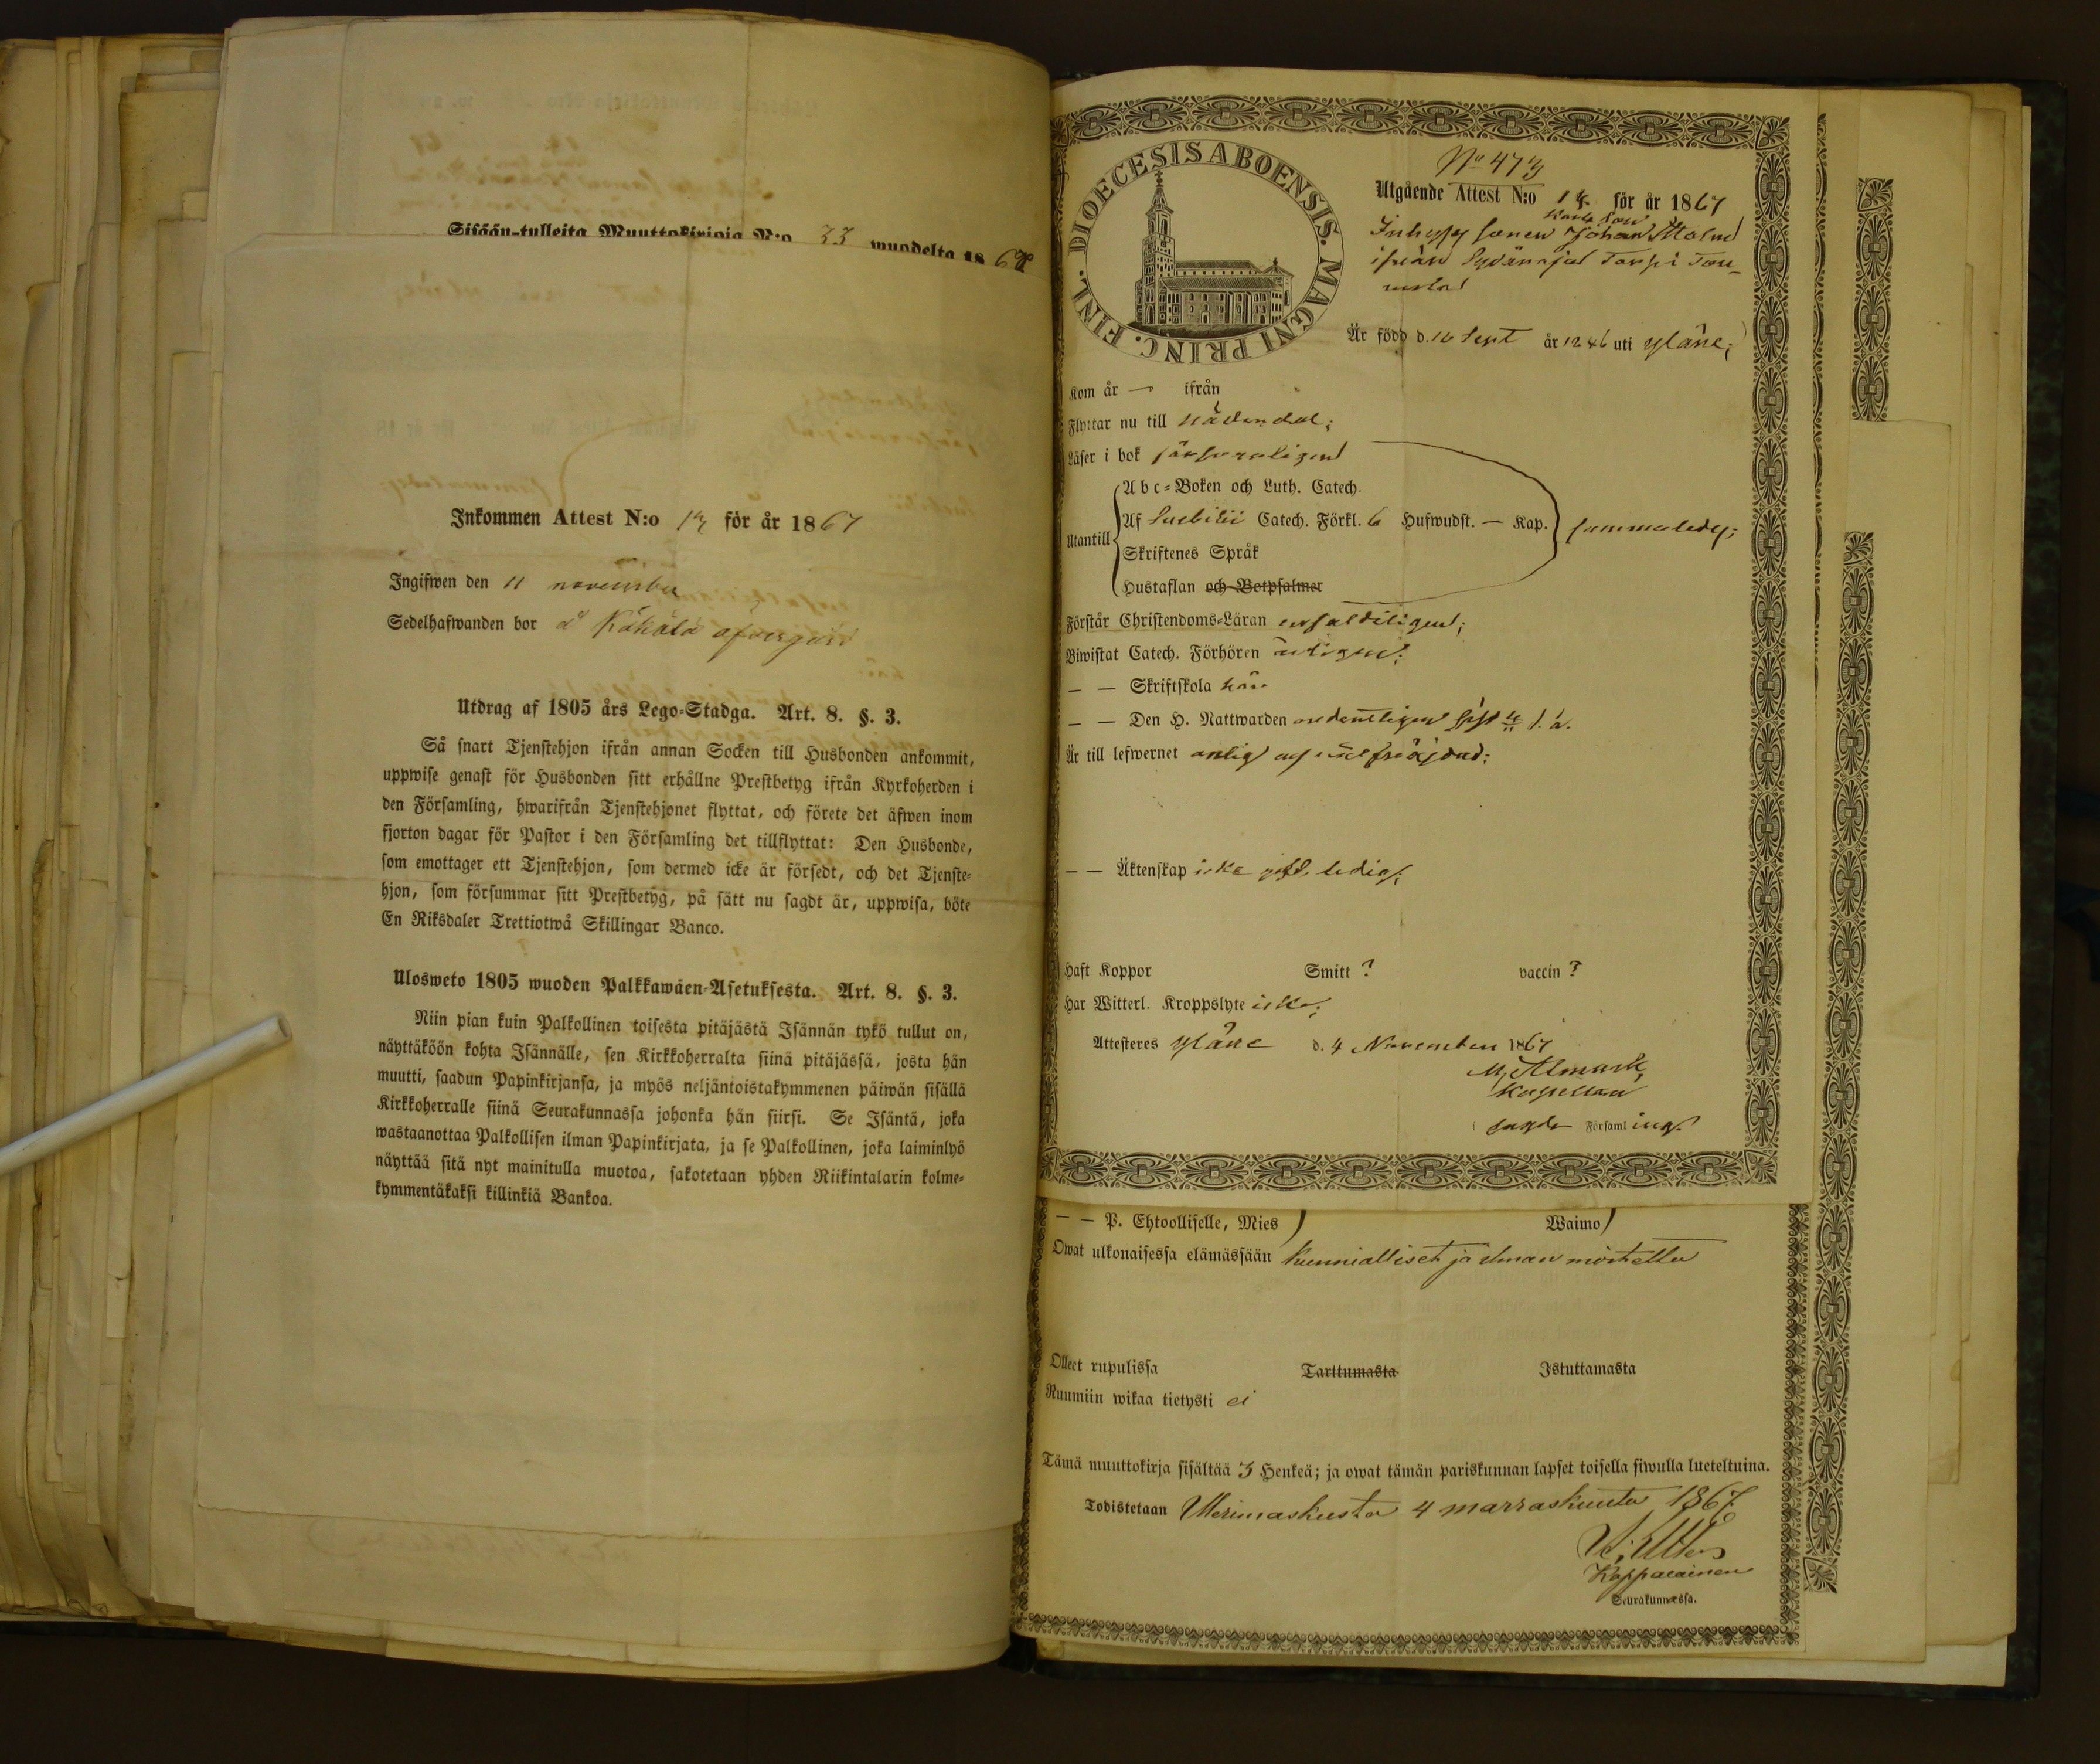 Sisään-tulleita Muuttokirjoja N:o 33 wuodelta 1867
Inkommen Attest N:o för år 1867
Ingifwen den 11 november
Sedelhafwanden bor å
Utdrag af 1805 års Lego-Stadga. Art. 8. §. 3.
Så snart Tjenstehjon ifrån annan Socken till Husbonden ankommit,
uppwise genast för Husbonden sitt erhållne Prestbetyg ifrån Kyrkoherden i
den Församling, hwarifrån Tjenstehjonet flyttat, och förete det äfwen inom
fjorton dagar för Pastor i den Församling det tillflyttat: Den Husbonde,
som emottager ett Tjenstehjon, som dermed icke är försedt, och det Tjenste-
hjon, som försummar sitt Prestbetyg, på sätt nu sagdt är, uppwisa, böte
En Riksdaler Trettiotwå Skillingar Banco.
Ulosweto 1805 wuoden Palkkawäen-Asetuksesta. Art. 8. §. 3.
Niin pian kuin Palkollinen toisesta pitäjästä Isännän tykö tullut on,
näyttäköön kohta Isännälle, sen Kirkkoherralta siinä pitäjässä, josta hän
muutti, saadun Papinkirjansa, ja myös neljäntoistakymmenen päiwän sisällä
Kirkkoherralle siinä Seurakunnassa johonka hän siirsi. Se Isäntä, joka
wastaanottaa Palkollisen ilman Papinkirjata, ja se Palkollinen, joka laiminlyö
näyttää sitä nyt mainitulla muotoa, sakotetaan yhden Riikintalarin kolme-
kymmentäkaksi killinkiä Bankoa.
FINL. DIOECESIS ABOENSIS. MAGNI PRINC.
No 473
Utgående Attest N:o för år 1867
Inhyses sonen Johan Malm
ifrån
Är född d. 16 Sept år 1846 uti Yläne;
Kom år — ifrån
Flyttar nu till Nådendal;
Läser i bok försvarligen
Utantill
Abc-Boken och Luth. Catech.
Af Svebilii Catech. Förkl. 6 Hufwudst. — Kap. sammaledes;
Skriftenes Språk
Hustaflan och Botpsalmer
Förstår Christendoms-Läran enfaldeligen;
Biwistat Catech. Förhören årligen;
— — Skriftskola här
— — Den H. Nattwarden ordentligen sist
Är till lefwernet ärlig och välfräjdad;
— — Äktenskap icke gift, ledig;
Haft Koppor Smitt ? vaccin ?
Har Witterl. Kroppslyte icke;
Attesteres Yläne d. 4 November 1867
Kapellan
i sagde Församling.
— — P. Ehtoolliselle, Mies Waimo
Owat ulkonaisessa elämässään kunnialliset ja ilman moitetta
Olleet rupulissa Tarttumasta Istuttamasta
Ruumiin wikaa tietysti ei
Tämä muuttokirja sisältää 3 Henkeä; ja owat tämän pariskunnan lapset toisella siwulla lueteltuina.
Todistetaan Merimaskusta 4 marraskuuta 1867
Kappalainen
Seurakunnassa.